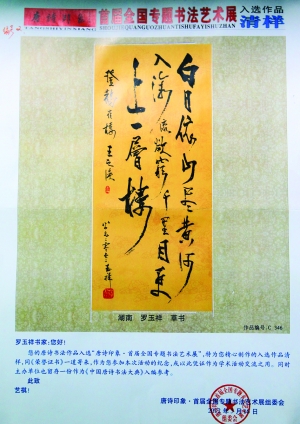 唐诗印象
首届全国专题书法艺术展
入选作品
清样
白日依山尽黄河
入海流欲穷千里目更
上一层楼
登鹳雀楼 王之涣
湖南 罗玉祥 草书
作品编号:C 546
罗玉祥书家:您好!
您的唐诗书法作品入选“唐诗印象·首届全国专题书法艺术展”,特为您精心制作的入选作品清
样,同《荣誉证书》一道寄来,作为您参加本次活动的纪念,或以此凭证作为学术活动交流之用。同时
主办单位也留存一份作为《中国唐诗书法大典》入编参考。
此致
艺祺!
唐诗印象·首届全国专题书法艺术展组委会